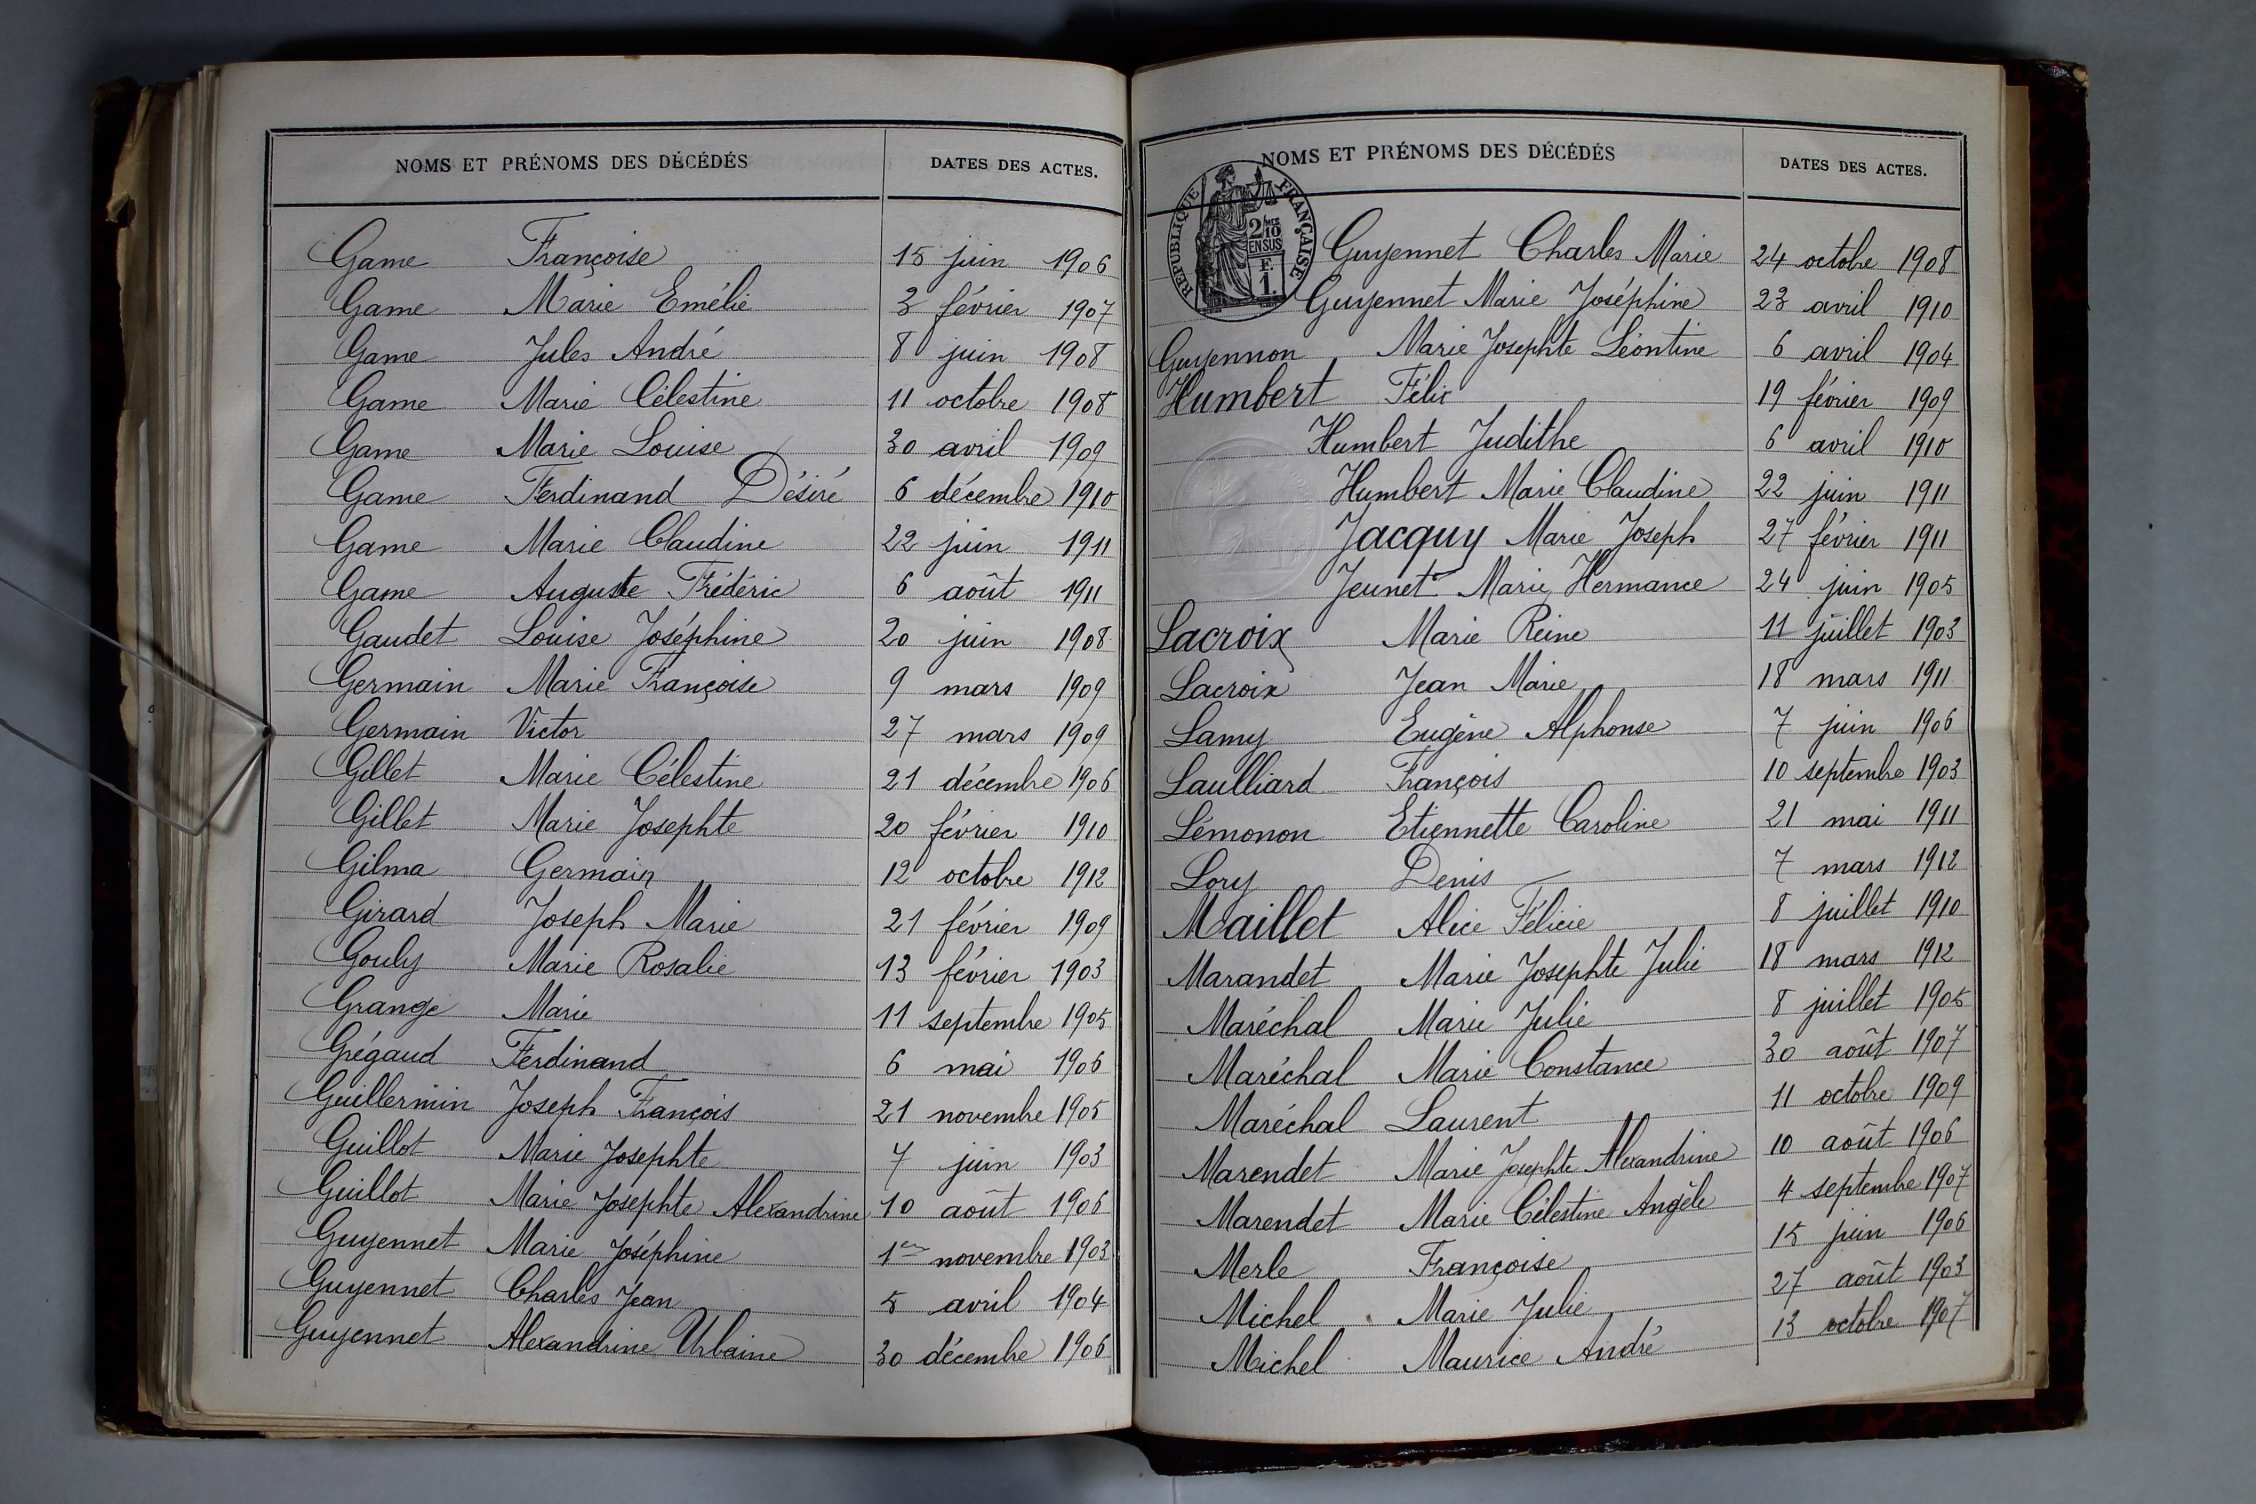 NOMS ET PRÉNOMS DES DÉCÉDÉS DATES DES ACTES.
Game Françoise 15 juin 1906
Game Marie Emélie 3 février 1907
Game Jules André 8 juin 1908
Game Marie Célestine 11 octobre 1908
Game Marie Louise 30 avril 1909
Game Ferdinand Désiré 6 décembre 1910
Game Marie Claudine 22 juin 1911
Game Auguste Frédéric 6 août 1911
Gaudet Louise Joséphine 20 juin 1908
Germain Marie Françoise 9 mars 1909
Germain Victor 27 mars 1909
Gillet Marie Célestine 21 décembre 1906
Gillet Marie Josephte 20 février 1910
Gilma Germain 12 octobre 1912
Girard Joseph Marie 21 février 1909
Gouly Marie Rosalie 13 février 1903
Grange Marie 11 septembre 1905
Grégaud Ferdinand 6 mai 1906
Guillermin Joseph François 21 novembre 1905
Guillot Marie Josephte 7 juin 1903
Guillot Marie Josephte Alexandrine 10 août 1906
Guyennet Marie Joséphine 1er novembre 1903
Guyennet Charles Jean 5 avril 1904
Guyennet Alexandrine Urbaine 30 décembre 1906
NOMS ET PRÉNOMS DES DÉCÉDÉS DATES DES ACTES.
RÉPUBLIQUE FRANÇAISE
2/10
EN SUS
F.
1.
Guyennet Charles Marie 24 octobre 1908
Guyennet Marie Joséphine 23 avril 1910
Guyennon Marie Josephte Léontine 6 avril 1904
Humbert Félix 19 février 1909
Humbert Judithe 6 avril 1910
Humbert Marie Claudine 22 juin 1911
Jacquy Marie Joseph 27 février 1911
Jeunet Marie Hermance 24 juin 1905
Lacroix Marie Reine 11 juillet 1903
Lacroix Jean Marie 18 mars 1911
Lamy Eugène Alphonse 7 juin 1906
Laulliard François 10 septembre 1903
Lémonon Etiennette Caroline 21 mai 1911
Lory Denis 7 mars 1912
Maillet Alice Félicie 8 juillet 1910
Marandet Marie Josephte Julie 18 mars 1912
Maréchal Marie Julie 8 juillet 1905
Maréchal Marie Constance 30 août 1907
Maréchal Laurent 11 octobre 1909
Marendet Marie Josephte Alexandrine 10 août 1906
Marendet Marie Célestine Angèle 4 septembre 1907
Merle Françoise 15 juin 1906
Michel Marie Julie 27 août 1903
Michel Maurice André 13 octobre 1907